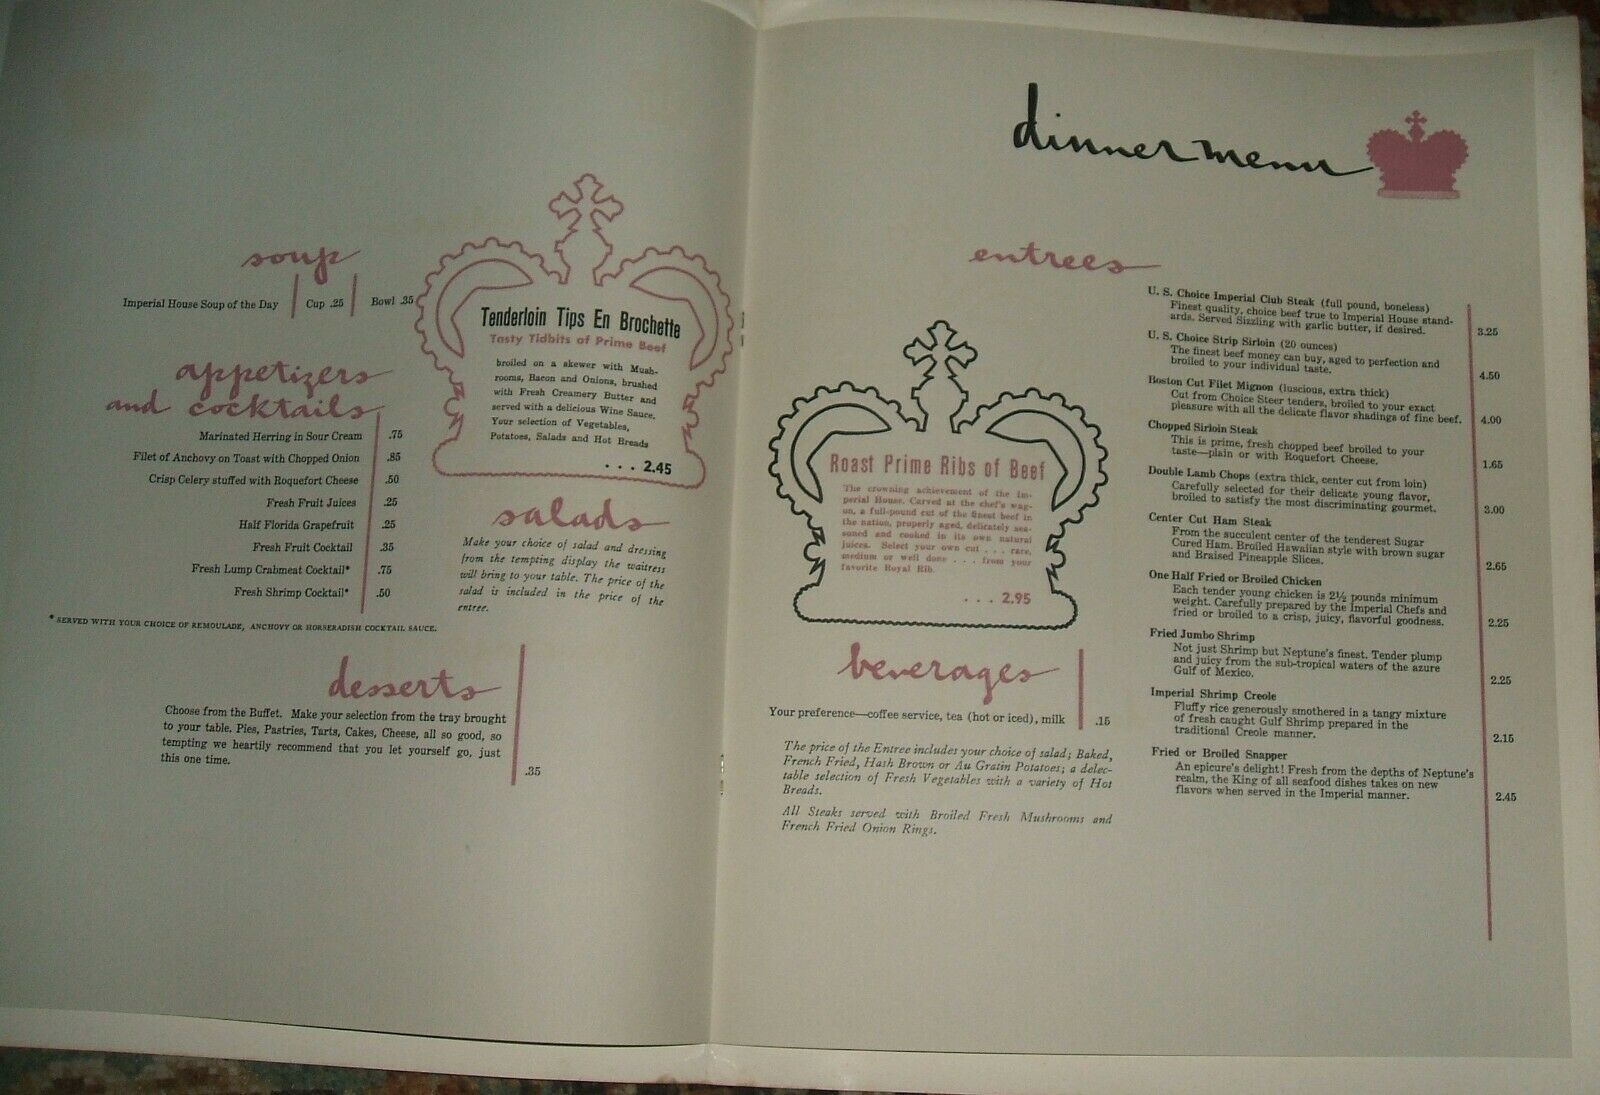 soup
Imperial House Soup of the Day | Cup .25 | Bowl .35
appetizers
and cocktails
Marinated Herring in Sour Cream .75
Filet of Anchovy on Toast with Chopped Onion .85
Crisp Celery stuffed with Roquefort Cheese .50
Fresh Fruit Juices .25
Half Florida Grapefruit .25
Fresh Fruit Cocktail .35
Fresh Lump Crabmeat Cocktail* .75
Fresh Shrimp Cocktail* .50
* SERVED WITH YOUR CHOICE OF REMOULADE, ANCHOVY OR HORSERADISH COCKTAIL SAUCE.
desserts
Choose from the Buffet. Make your selection from the tray brought
to your table. Pies, Pastries, Tarts, Cakes, Cheese, all so good, so
tempting we heartily recommend that you let yourself go, just
this one time.
.35
Tenderloin Tips En Brochette
Tasty Tidbits of Prime Beef
broiled on a skewer with Mush-
rooms, Bacon and Onions, brushed
with Fresh Creamery Butter and
served with a delicious Wine Sauce.
Your selection of Vegetables,
Potatoes, Salads and Hot Breads
. . . 2.45
salads
Make your choice of salad and dressing
from the tempting display the waitress
will bring to your table. The price of the
salad is included in the price of the
entree.
dinner menu
Roast Prime Ribs of Beef
The crowning achievement of the Im-
perial House. Carved at the chef's wag-
on, a full-pound cut of the finest beef in
the nation, properly aged, delicately sea-
soned and cooked in its own natural
juices. Select your own cut . . . rare,
medium or well done . . . from your
favorite Royal Rib.
. . . 2.95
beverages
Your preference—coffee service, tea (hot or iced), milk .15
The price of the Entree includes your choice of salad; Baked,
French Fried, Hash Brown or Au Gratin Potatoes; a delec-
table selection of Fresh Vegetables with a variety of Hot
Breads.
All Steaks served with Broiled Fresh Mushrooms and
French Fried Onion Rings.
entrees
U. S. Choice Imperial Club Steak (full pound, boneless)
Finest quality, choice beef true to Imperial House stand-
ards. Served Sizzling with garlic butter, if desired. 3.25
U. S. Choice Strip Sirloin (20 ounces)
The finest beef money can buy, aged to perfection and
broiled to your individual taste. 4.50
Boston Cut Filet Mignon (luscious, extra thick)
Cut from Choice Steer tenders, broiled to your exact
pleasure with all the delicate flavor shadings of fine beef. 4.00
Chopped Sirloin Steak
This is prime, fresh chopped beef broiled to your
taste—plain or with Roquefort Cheese. 1.65
Double Lamb Chops (extra thick, center cut from loin)
Carefully selected for their delicate young flavor,
broiled to satisfy the most discriminating gourmet. 3.00
Center Cut Ham Steak
From the succulent center of the tenderest Sugar
Cured Ham. Broiled Hawaiian style with brown sugar
and Braised Pineapple Slices. 2.65
One Half Fried or Broiled Chicken
Each tender young chicken is 2½ pounds minimum
weight. Carefully prepared by the Imperial Chefs and
fried or broiled to a crisp, juicy, flavorful goodness. 2.25
Fried Jumbo Shrimp
Not just Shrimp but Neptune's finest. Tender plump
and juicy from the sub-tropical waters of the azure
Gulf of Mexico. 2.25
Imperial Shrimp Creole
Fluffy rice generously smothered in a tangy mixture
of fresh caught Gulf Shrimp prepared in the
traditional Creole manner. 2.15
Fried or Broiled Snapper
An epicure's delight! Fresh from the depths of Neptune's
realm, the King of all seafood dishes takes on new
flavors when served in the Imperial manner. 2.45